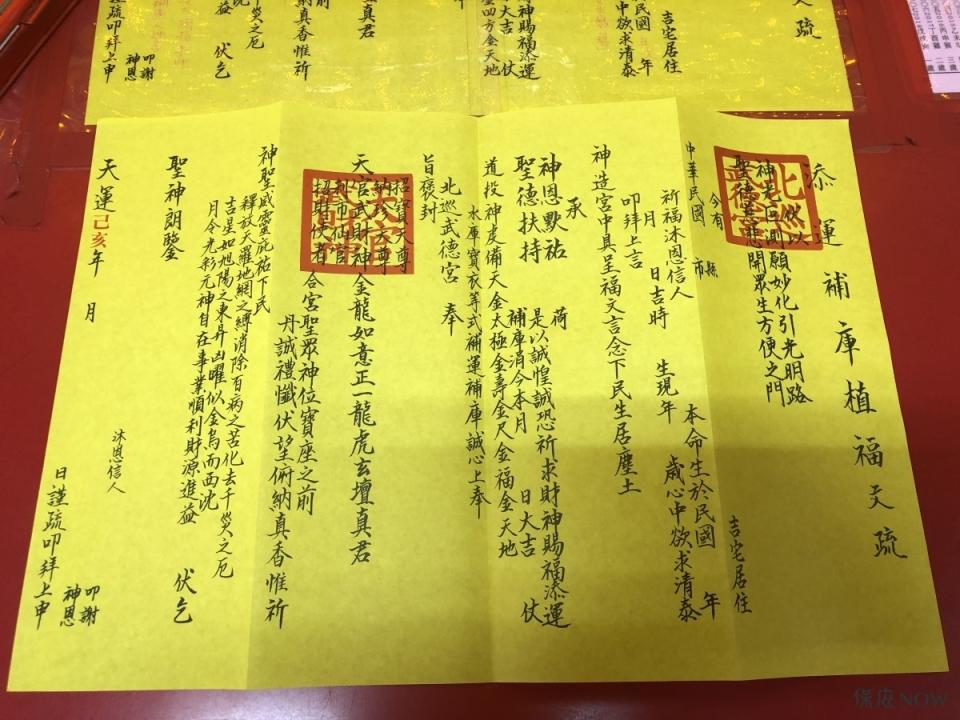 添運補庫植福文疏
伏以
神光巨測願妙化引光明路
聖德慈悲開眾生方便之門
今有
縣
市
吉宅居住
中華民國
祈福沐恩信人
本命生於民國 年
月 日吉時 生現年 歲心中欲求清泰
叩拜上言
神造宮中具呈福文言念下民生居塵土
承
神恩默祐 荷
聖德扶持 是以誠惶誠恐祈求財神賜福添運
補庫消今本月 日大吉 仗
道投神虔備天金太極金壽金尺金福金天地
水庫寶衣等式補運補庫誠心上奉
旨褒封
北巡武德宮 奉
天官武財神金龍如意正一龍虎玄壇真君
招寶天尊
納珍天尊
利市仙官
招財使者 合宮聖眾神位寶座之前
丹誠禮懺伏望俯納真香惟祈
神聖威靈庇祐下民
釋放天羅地網之縛消除百病之苦化去千災之厄
吉星如旭陽之東昇凶曜似金烏而西沈
月令光彩元神自在事業順利財源進益 伏乞
聖神朗鑒
沐恩信人
叩謝
神恩
天運己亥年 月 日謹疏叩拜上申
文疏
吉宅居住
民國 年
中欲求清泰
財神賜福添運
日大吉 仗
壽四方金天地
真君
之前
納真香惟祈
千災之厄
伏乞
叩謝
神恩
拜上申
保庇NOW